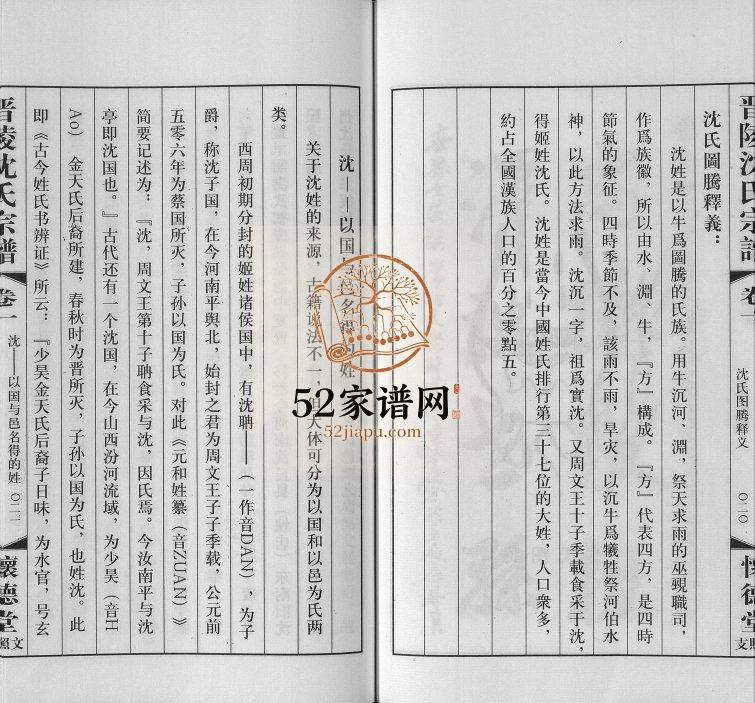 晋陵沈氏宗譜 卷一 沈氏图腾释义 〇二〇 懷德堂
沈氏圖騰釋義：
沈姓是以牛爲圖騰的氏族。用牛沉河、淵，祭天求雨的巫覡職司，
作爲族徽，所以由水、淵、牛，『方』構成。『方』代表四方，是四時
節氣的象征。四時季節不及，該雨不雨，旱灾，以沉牛爲犧牲祭河伯水
神，以此方法求雨。沈沉一字，祖爲實沈。又周文王十子季載食采于沈，
得姬姓沈氏。沈姓是當今中國姓氏排行第三十七位的大姓，人口衆多，
約占全國漢族人口的百分之零點五。
沈——以国与邑名得的姓
关于沈姓的来源，古籍说法不一，但大体可分为以国和以邑为氏两
类。
西周初期分封的姬姓诸侯国中，有沈聃——（一作音DAN），为子
爵，称沈子国，在今河南平舆北，始封之君为周文王子子季载，公元前
五零六年为蔡国所灭，子孙以国为氏。对此《元和姓纂（音ZUAN）》
简要记述为：『沈，周文王第十子聃食采与沈，因氏焉。今汝南平与沈
亭即沈国也。』古代还有一个沈国，在今山西汾河流域，为少昊（音H
Ao）金天氏后裔所建，春秋时为晋所灭，子孙以国为氏，也姓沈。此
即《古今姓氏书辨证》所云：『少昊金天氏后裔子日味，为水官，号玄
晋陵沈氏宗譜 卷一 沈——以国与邑名得的姓 〇二一 懷德堂
52家谱网
52jiapu.com